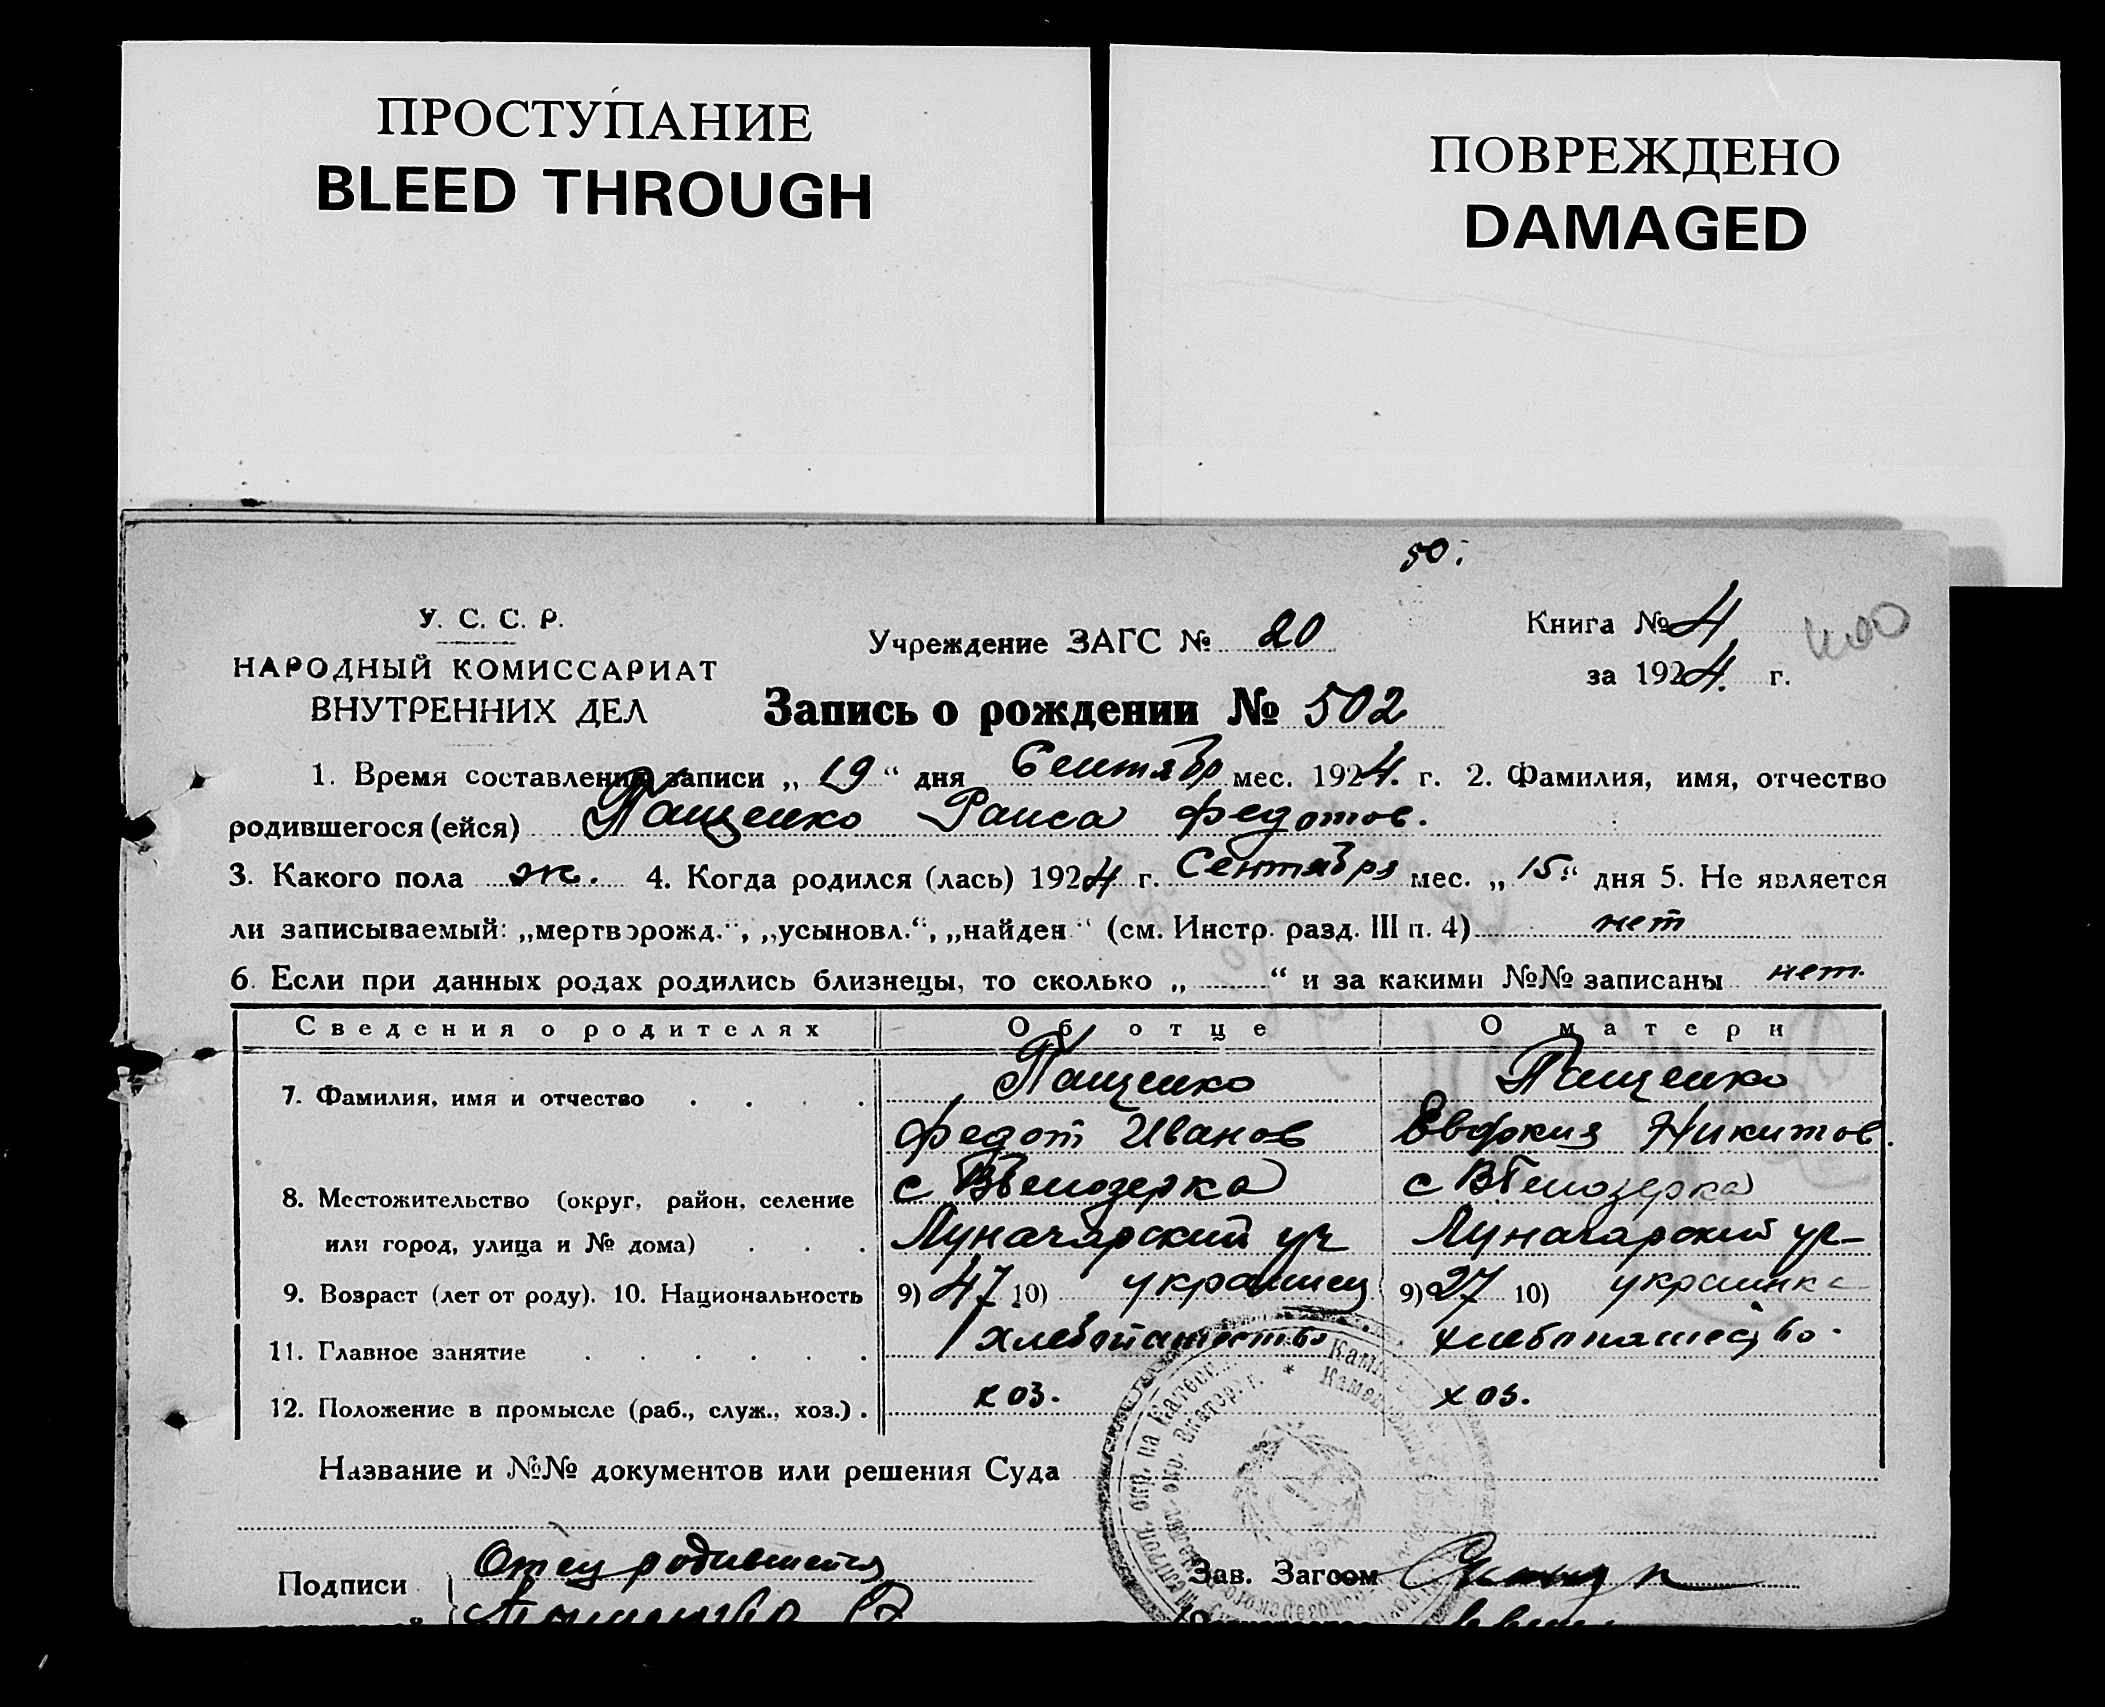 ПРОСТУПАНИЕ
BLEED THROUGH
ПОВРЕЖДЕНО
DAMAGED
50.
У. С. С. Р.
НАРОДНЫЙ КОМИССАРИАТ
ВНУТРЕННИХ ДЕЛ
Учреждение ЗАГС № 20
Книга № 4
за 1924 г.
Запись о рождении № 502
1. Время составления записи „ 19 “ дня Сентябр мес. 1924 г. 2. Фамилия, имя, отчество
родившегося (ейся) Пащенко Раиса Федотов.
3. Какого пола ж. 4. Когда родился (лась) 1924 г. Сентября мес. „ 15 “ дня 5. Не является
ли записываемый: „мертворожд.“, „усыновл.“, „найден “ (см. Инстр. разд. III п. 4) нет
6. Если при данных родах родились близнецы, то сколько „ “ и за какими №№ записаны нет.
Сведения о родителях Об отце О матери
7. Фамилия, имя и отчество Пащенко Пащенко
Федот Иванов Евфокия Никитов.
8. Местожительство (округ, район, селение с ВБелозерка с ВБелозерка
или город, улица и № дома) Луначарский уч Луначарский уч
9. Возраст (лет от роду). 10. Национальность 9) 47 10) украинец 9) 27 10) украинка
11. Главное занятие хлебопашество хлебопашество.
12. Положение в промысле (раб., служ., хоз.) хоз. хоз.
Название и №№ документов или решения Суда
Подписи Отец родившейся Зав. Загсом